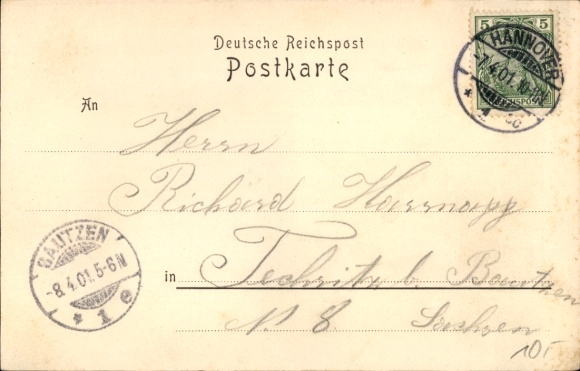 Deutsche Reichspost
Postkarte
5 5
REICHSPOST
HANNOVER
7.4.01.
An
Herrn
Richard
BAUTZEN
-8.4.01.5-6N
* 1 e
in Techritz b. Bautzen
N. 8 Sachsen
10,-